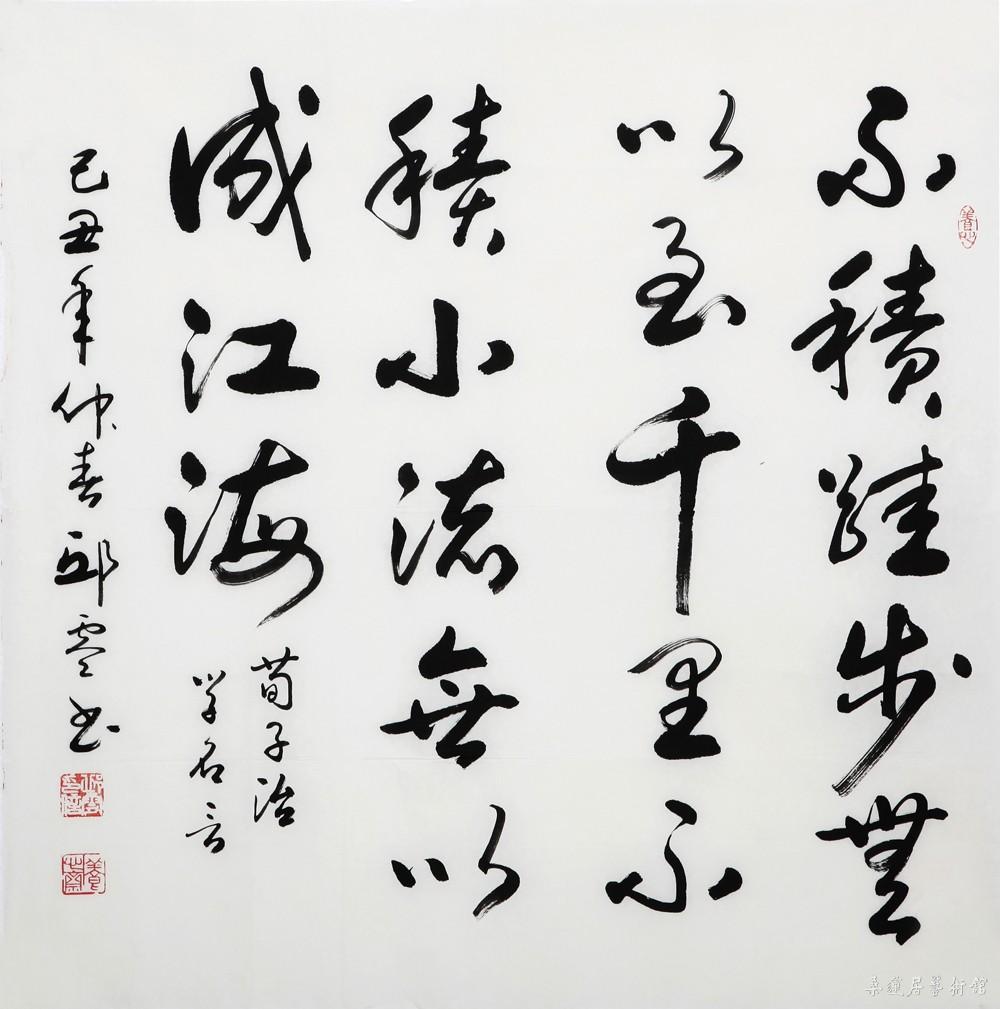 不積跬步無
以至千里不
積小流無以
成江海
荀子治
学名言
己丑年仲春邱书
桑蓮居藝術館